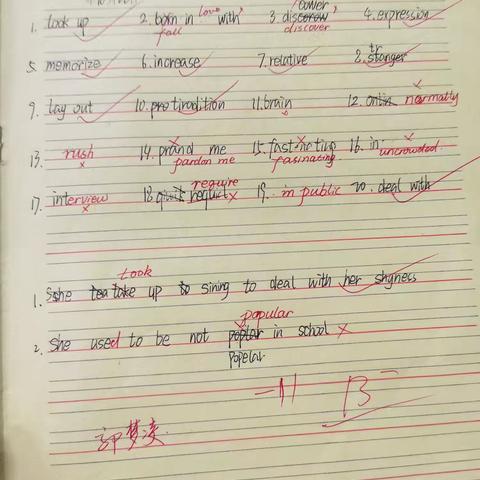 1. look up 2. born in love with 3. discover 4. expression
fall discover
5. memorize 6. increase 7. relative 8. stranger
9. lay out 10. protiradition 11. brain 12. normally
13. rush 14. prand me 15. fast 16. in uncrowded
pardon me fasinating
17. interview 18. require 19. in public 20. deal with
took
1. She take up to sining to deal with her shyness
popular
2. She used to be not poplar in school
popelar
-11 B-